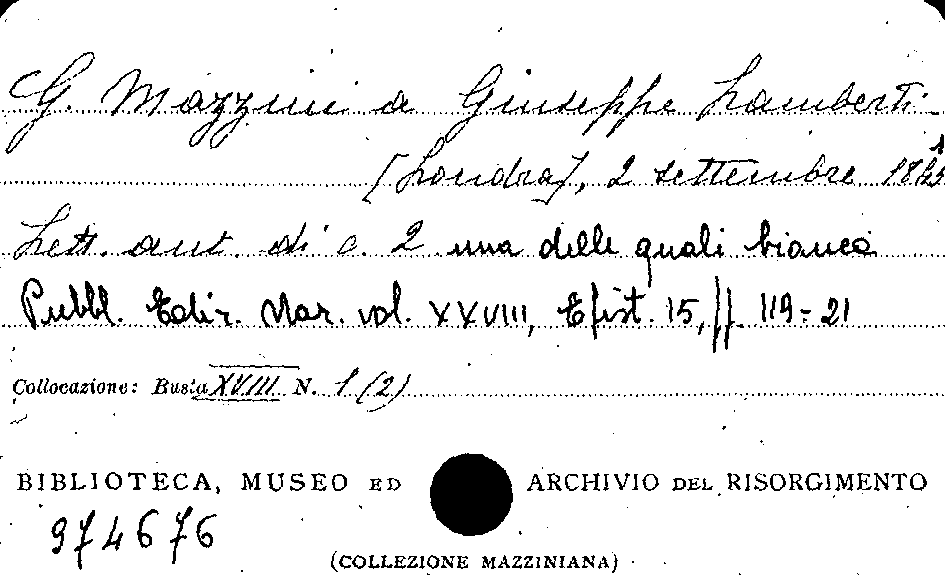 G. Mazzini a Giuseppe Lamberti.
[Londra], 2 settembre
Lett. aut. di c. 2 una delle quali bianca
Pubbl. Ediz. Naz. vol. XXVIII, Epist. 15, pp. 119-21
Collocazione: Busta XVIII N. 1 (2)
BIBLIOTECA, MUSEO ED ARCHIVIO DEL RISORGIMENTO
974676
(COLLEZIONE MAZZINIANA)